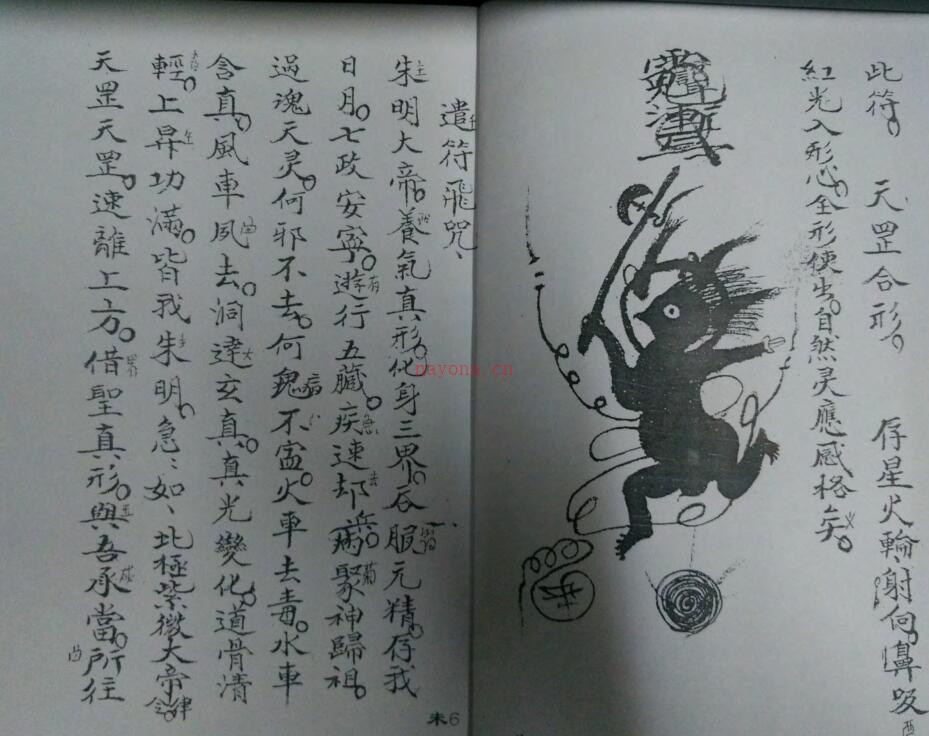 此符。天罡合形。存星火輪射向。鼻吸
紅光入形心。全形使出。自然灵應感格矣。
遣符飛咒、
朱明大帝。養氣真形。化身三界。吞服元精。存我
日月。七政安寧。遊行五臟。疾速却病。聚神歸祖。
過魂天灵。何邪不去。何鬼不寍。火車去毒。水車
含真。風車夙去。洞達玄真。真光變化。道骨清
輕。上昇功滿。皆我朱明。急、如、北極紫微大帝律令。
天罡天罡。速離上方。借聖真形。與吾承當。所往
未6
nayona.cn